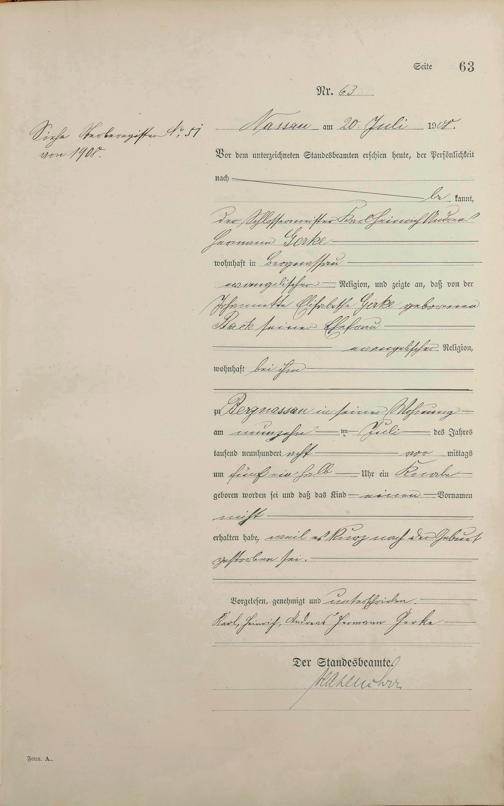 Seite 63
Nr. 63
Siehe Sterberegister No. 51
von 1908.
Nassau am 20. Juli 1908.
Vor dem unterzeichneten Standesbeamten erschien heute, der Persönlichkeit
nach
be kannt,
der Schlossermeister Karl Heinrich Andreas
Hermann Gerke
wohnhaft in Bergnassau
evangelischer Religion, und zeigte an, daß von der
Johannette Elisabethe Gerke geborenen
seiner Ehefrau
evangelischer Religion,
wohnhaft bei ihm
zu Bergnassau in seiner Wohnung
am neunzehn ten Juli des Jahres
tausend neunhundert acht vor mittags
um fünf ein halb Uhr ein Knabe
geboren worden sei und daß das Kind einen Vornamen
nicht
erhalten habe, weil es kurz nach der Geburt
gestorben sei.
Vorgelesen, genehmigt und unterschrieben.
Karl, Heinrich, Andreas Hermann Gerke
Der Standesbeamte.
Form. A.